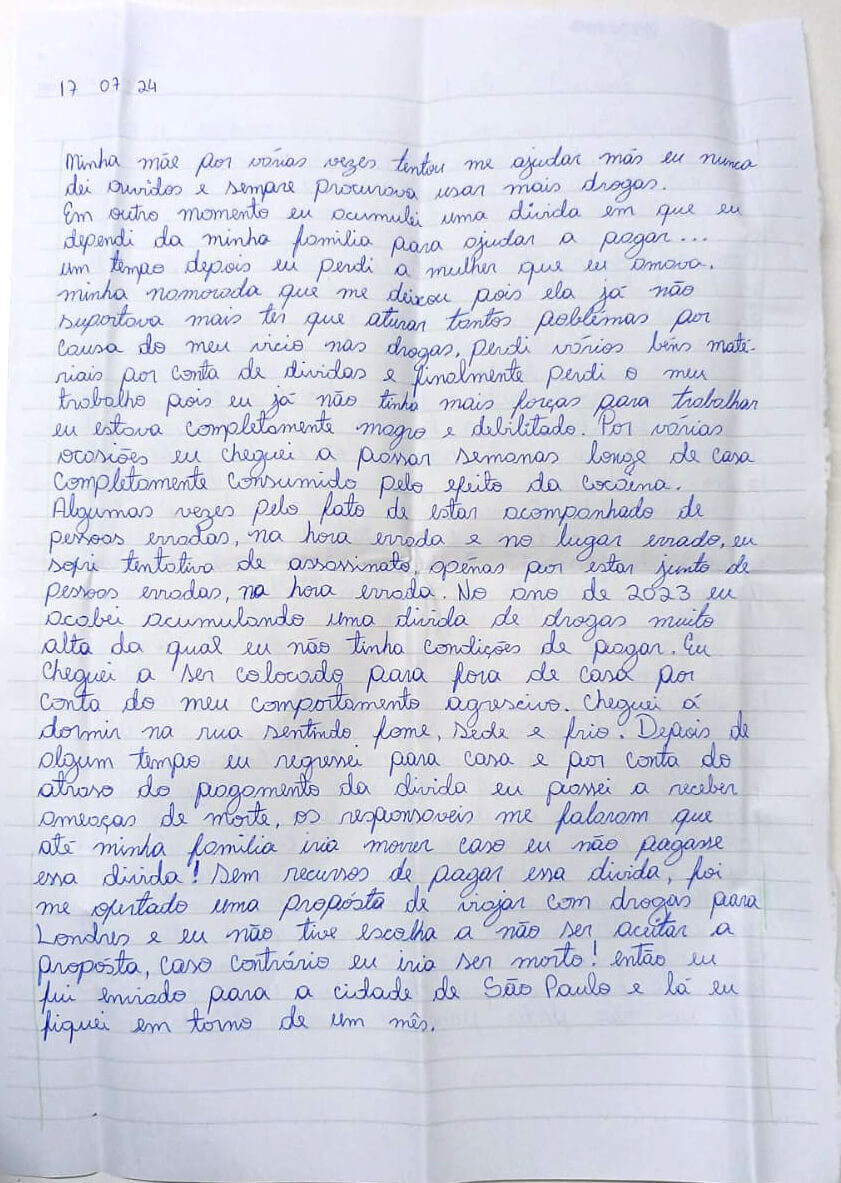 17 07 24
Minha mãe por várias vezes tentou me ajudar más eu nunca
dei ouvidos e sempre procurava usar mais drogas.
Em outro momento eu acumulei uma divida em que eu
dependi da minha familia para ajudar a pagar...
um tempo depois eu perdi a mulher que eu amava.
minha namorada que me deixou pois ela já não
suportava mais ter que aturar tantos poblemas por
causa do meu vicio nas drogas, perdi vários bens mate-
riais por conta de dividas e finalmente perdi o meu
trabalho pois eu já não tinha mais forças para trabalhar
eu estava completamente magro e debilitado. Por várias
ocasiões eu cheguei a passar semanas longe de casa
completamente consumido pelo efeito da cocaína.
Algumas vezes pelo fato de estar acompanhado de
pessoas erradas, na hora errada e no lugar errado, eu
sofri tentativa de assassinato, apenas por estar junto de
pessoas erradas, na hora errada. No ano de 2023 eu
acabei acumulando uma divida de drogas muito
alta da qual eu não tinha condições de pagar. Eu
cheguei a ser colocado para fora de casa por
conta do meu comportamento agrescivo. Cheguei á
dormir na rua sentindo fome, sede e frio. Depois de
algum tempo eu regressei para casa e por conta do
atraso do pagamento da divida eu passei a receber
ameaças de morte, os responsaveis me falaram que
até minha familia iria morrer caso eu não pagasse
essa divida! Sem recursos de pagar essa divida, foi
me ofertado uma proposta de viajar com drogas para
Londres e eu não tive escolha a não ser aceitar a
proposta, caso contrário eu iria ser morto! então eu
fui enviado para a cidade de São Paulo e lá eu
fiquei em torno de um mês.